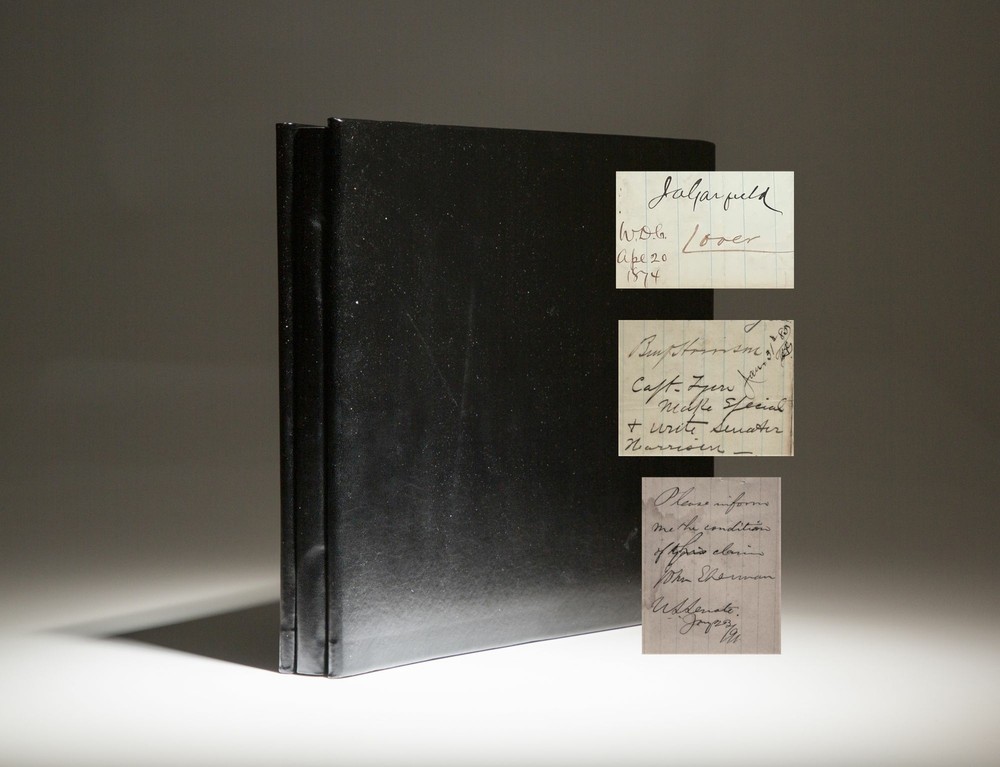 JaGarfield
W.D.C.
Ape 20
1874
Benj Harrison
Capt.
Make Special
+ write Senator
Harrison —
Please inform
me the condition
of this claim
John Sherman
U.S. Senate.